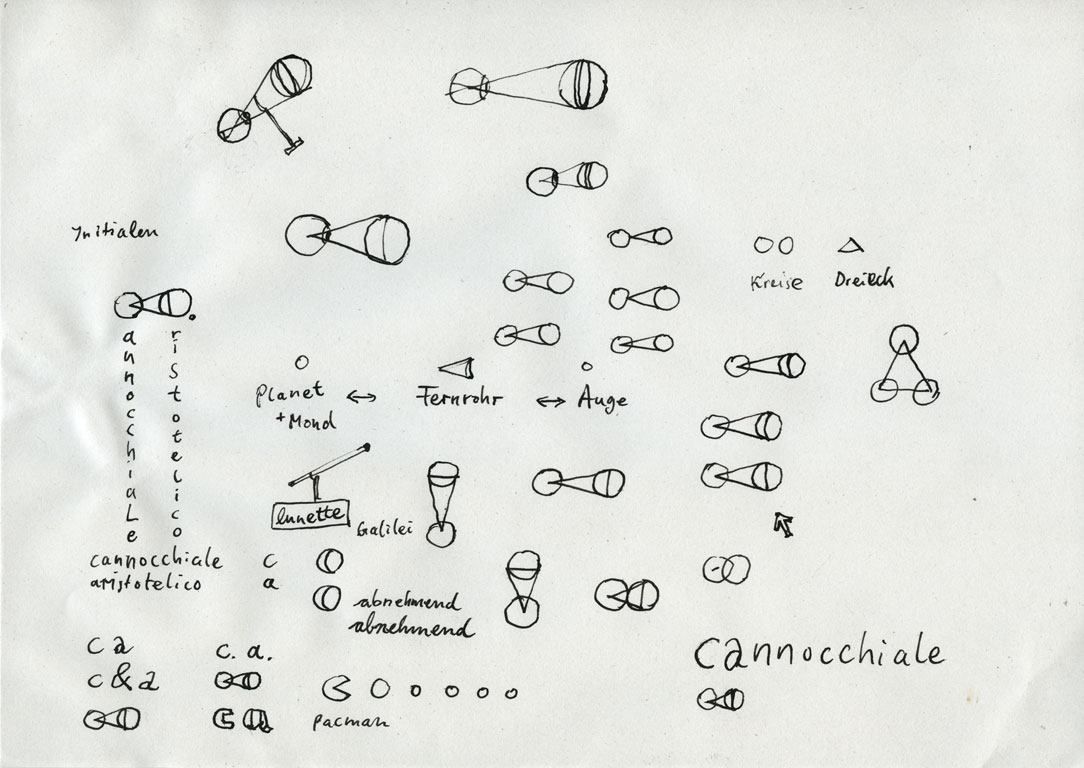 Initialen
Kreise
Dreieck
annocchiale
ristotelico
Planet
+Mond
Fernrohr
Auge
lunette
Galilei
cannocchiale
c
aristotelico
a
abnehmend
abnehmend
c a
c. a.
c & a
ca
pacman
cannocchiale